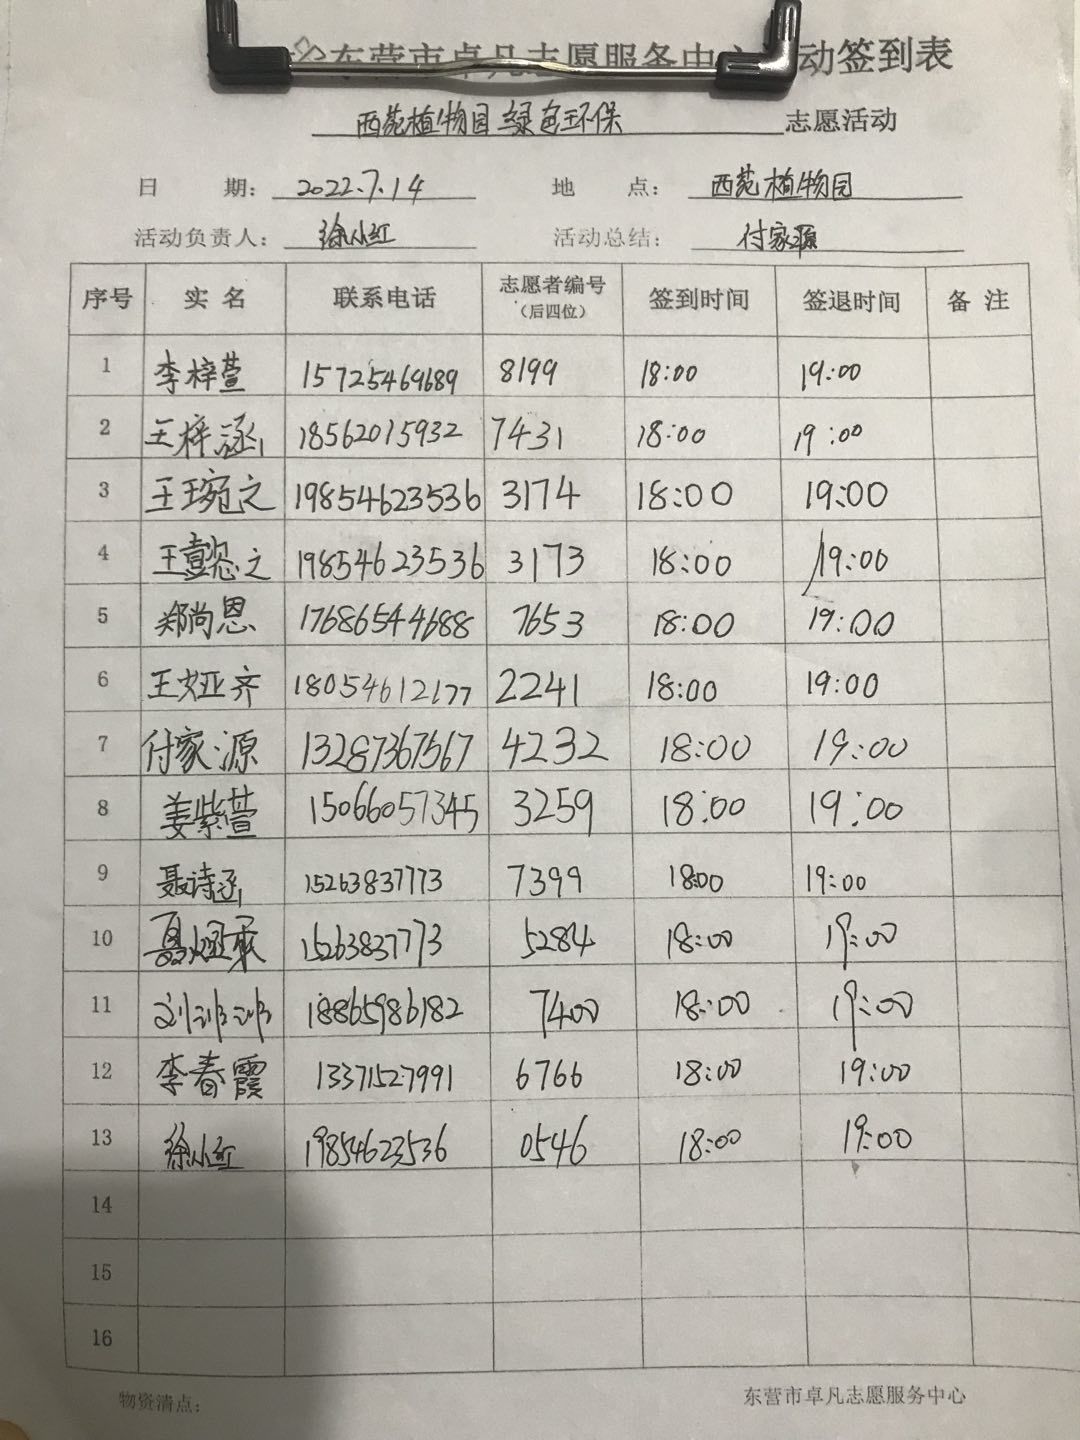 东营市卓凡志愿服务中心 动签到表
西苑植物园绿色环保 志愿活动
日 期: 2022.7.14 地 点: 西苑植物园
活动负责人: 徐小红 活动总结: 付家源
序号 实 名 联系电话 志愿者编号 (后四位) 签到时间 签退时间 备 注
1 李梓萱 15725469689 8199 18:00 19:00
2 王梓涵 18562015932 7431 18:00 19:00
3 王琬之 19854623536 3174 18:00 19:00
4 王懿之 19854623536 3173 18:00 19:00
5 郑尚恩 17686544688 7653 18:00 19:00
6 王娅齐 18054612177 2241 18:00 19:00
7 付家源 13287367567 4232 18:00 19:00
8 姜紫萱 15066057345 3259 18:00 19:00
9 聂诗涵 15263837773 7399 18:00 19:00
10 15263837773 5284 18:00 19:00
11 刘 18865986182 7400 18:00 19:00
12 李春霞 13371527991 6766 18:00 19:00
13 徐小红 19854623536 0546 18:00 19:00
14
15
16
物资清点: 东营市卓凡志愿服务中心